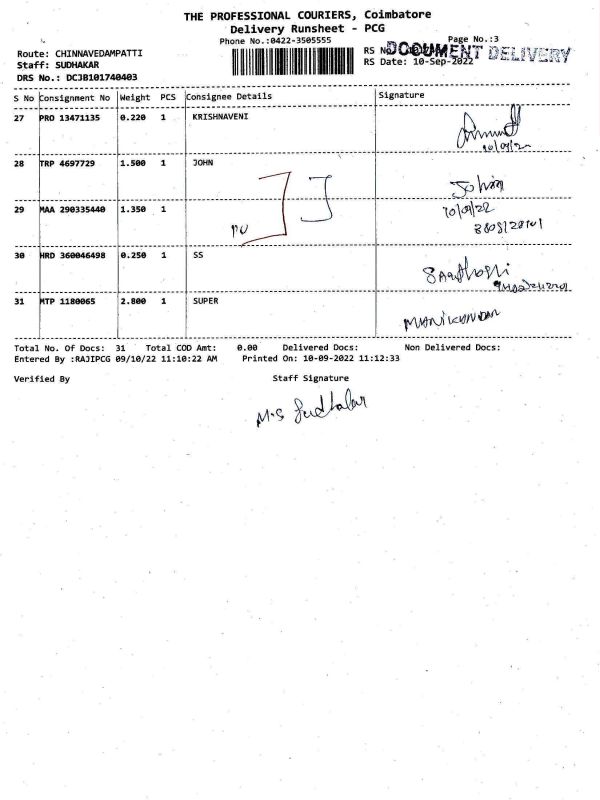 THE PROFESSIONAL COURIERS, Coimbatore
Delivery Runsheet - PCG
Phone No.:0422-3505555
Page No.:3
Route: CHINNAVEDAMPATTI
RS No
DOCUMENT DELIVERY
Staff: SUDHAKAR
RS Date: 10-Sep-2022
DRS No.: DCJB101740403
S No Consignment No Weight PCS Consignee Details Signature
27 PRO 13471135 0.220 1 KRISHNAVENI
10/09/22
28 TRP 4697729 1.500 1 JOHN
John
29 MAA 290335440 1.350 1
10/09/22
30 HRD 360046498 0.250 1 SS
Santhosh
31 MTP 1180065 2.800 1 SUPER
MANIKANDAN
Total No. Of Docs: 31 Total COD Amt: 0.00 Delivered Docs: Non Delivered Docs:
Entered By :RAJIPCG 09/10/22 11:10:22 AM Printed On: 10-09-2022 11:12:33
Verified By Staff Signature
M.S Sudhakar